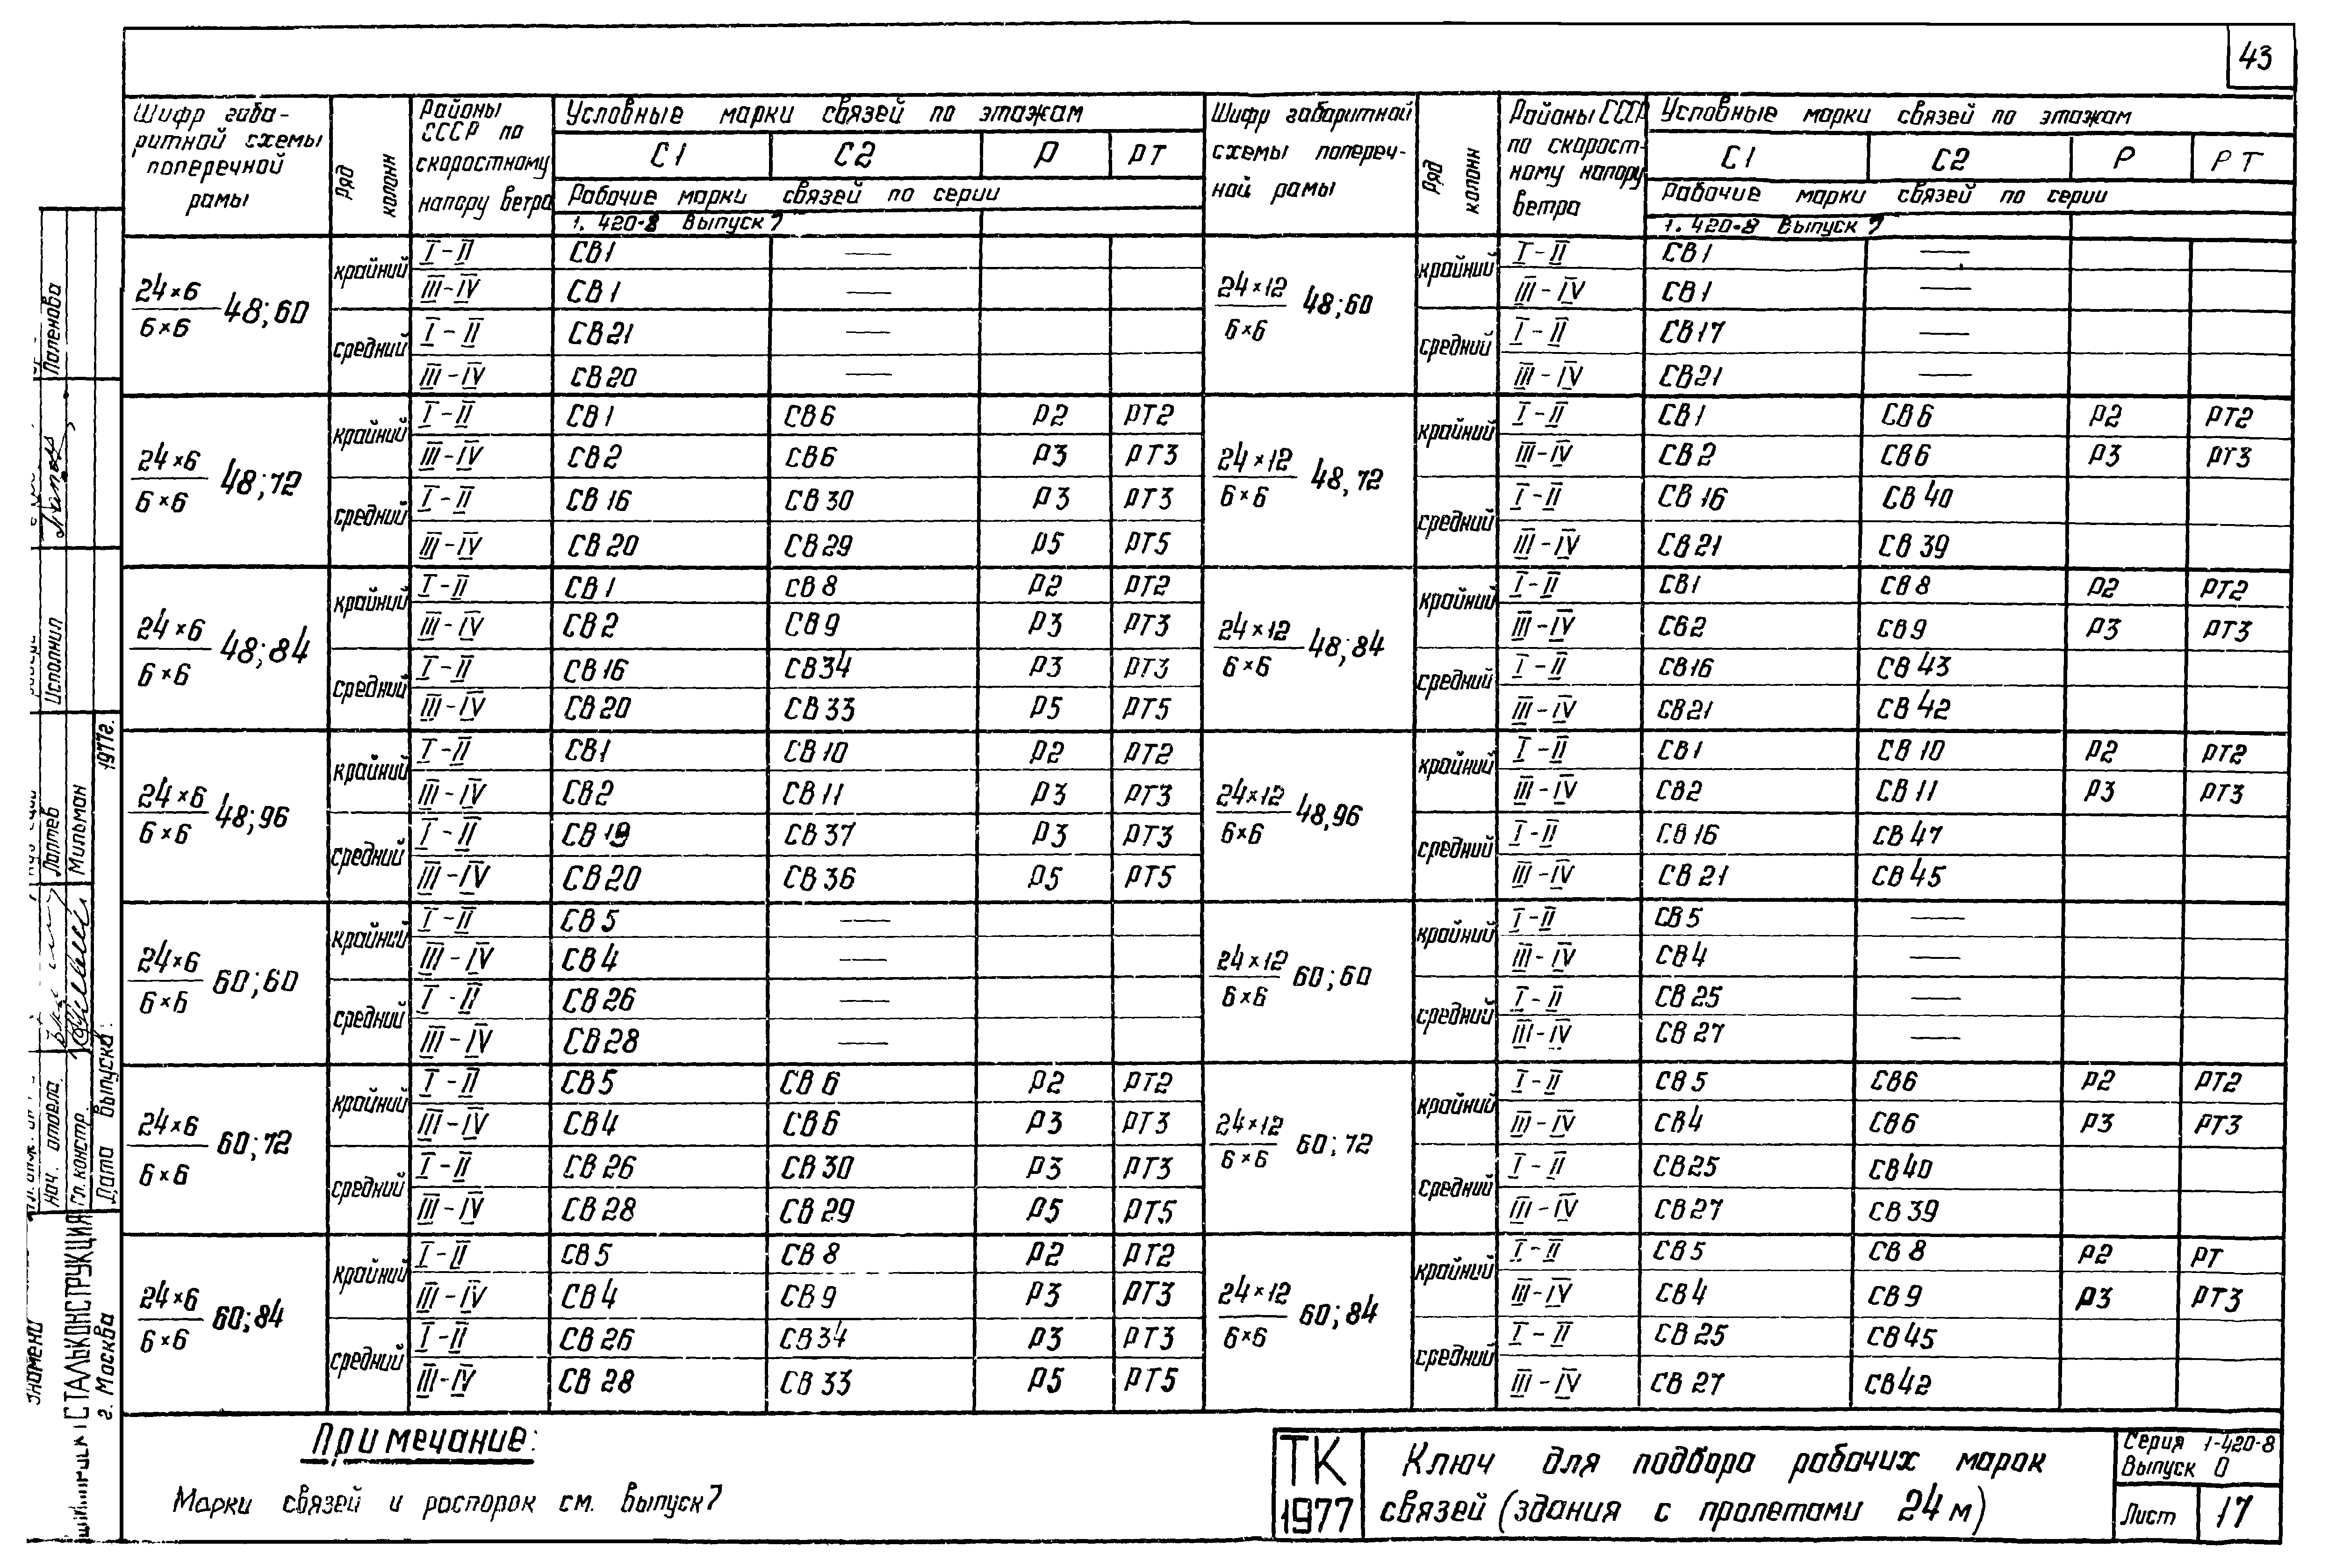 43
Шифр габа-
ритной схемы
поперечной
рамы
Ряд колонн
Районы
СССР по
скоростному
напору ветра
Условные марки связей по этажам
С1 С2 Р РТ
Рабочие марки связей по серии
1.420-8 Выпуск 7
24×6/6×6 48;60
крайний I-II СВ1 —
III-IV СВ1 —
средний I-II СВ21 —
III-IV СВ20 —
24×6/6×6 48;72
крайний I-II СВ1 СВ6 Р2 РТ2
III-IV СВ2 СВ6 Р3 РТ3
средний I-II СВ16 СВ30 Р3 РТ3
III-IV СВ20 СВ29 Р5 РТ5
24×6/6×6 48;84
крайний I-II СВ1 СВ8 Р2 РТ2
III-IV СВ2 СВ9 Р3 РТ3
средний I-II СВ16 СВ34 Р3 РТ3
III-IV СВ20 СВ33 Р5 РТ5
24×6/6×6 48;96
крайний I-II СВ1 СВ10 Р2 РТ2
III-IV СВ2 СВ11 Р3 РТ3
средний I-II СВ19 СВ37 Р3 РТ3
III-IV СВ20 СВ36 Р5 РТ5
24×6/6×6 60;60
крайний I-II СВ5 —
III-IV СВ4 —
средний I-II СВ26 —
III-IV СВ28 —
24×6/6×6 60;72
крайний I-II СВ5 СВ6 Р2 РТ2
III-IV СВ4 СВ6 Р3 РТ3
средний I-II СВ26 СВ30 Р3 РТ3
III-IV СВ28 СВ29 Р5 РТ5
24×6/6×6 60;84
крайний I-II СВ5 СВ8 Р2 РТ2
III-IV СВ4 СВ9 Р3 РТ3
средний I-II СВ26 СВ34 Р3 РТ3
III-IV СВ28 СВ33 Р5 РТ5
Шифр габаритной
схемы попереч-
ной рамы
Ряд колонн
Районы СССР
по скорост-
ному напору
ветра
Условные марки связей по этажам
С1 С2 Р РТ
Рабочие марки связей по серии
1.420-8 Выпуск 7
24×12/6×6 48;60
крайний I-II СВ1 —
III-IV СВ1 —
средний I-II СВ17 —
III-IV СВ21 —
24×12/6×6 48,72
крайний I-II СВ1 СВ6 Р2 РТ2
III-IV СВ2 СВ6 Р3 РТ3
средний I-II СВ16 СВ40
III-IV СВ21 СВ39
24×12/6×6 48;84
крайний I-II СВ1 СВ8 Р2 РТ2
III-IV СВ2 СВ9 Р3 РТ3
средний I-II СВ16 СВ43
III-IV СВ21 СВ42
24×12/6×6 48,96
крайний I-II СВ1 СВ10 Р2 РТ2
III-IV СВ2 СВ11 Р3 РТ3
средний I-II СВ16 СВ47
III-IV СВ21 СВ45
24×12/6×6 60;60
крайний I-II СВ5 —
III-IV СВ4 —
средний I-II СВ25 —
III-IV СВ27 —
24×12/6×6 60;72
крайний I-II СВ5 СВ6 Р2 РТ2
III-IV СВ4 СВ6 Р3 РТ3
средний I-II СВ25 СВ40
III-IV СВ27 СВ39
24×12/6×6 60;84
крайний I-II СВ5 СВ8 Р2 РТ
III-IV СВ4 СВ9 Р3 РТ3
средний I-II СВ25 СВ45
III-IV СВ27 СВ42
Примечание:
Марки связей и распорок см. выпуск 7
ТК
1977
Ключ для подбора рабочих марок
связей (здания с пролетами 24м)
Серия 1-420-8
Выпуск 0
Лист 17
Поленова
Исполнил
Лаптев
Мильман
1977г.
Нач. отдела
Гл. констр.
Дата выпуска:
СТАЛЬКОНСТРУКЦИЯ
г. Москва